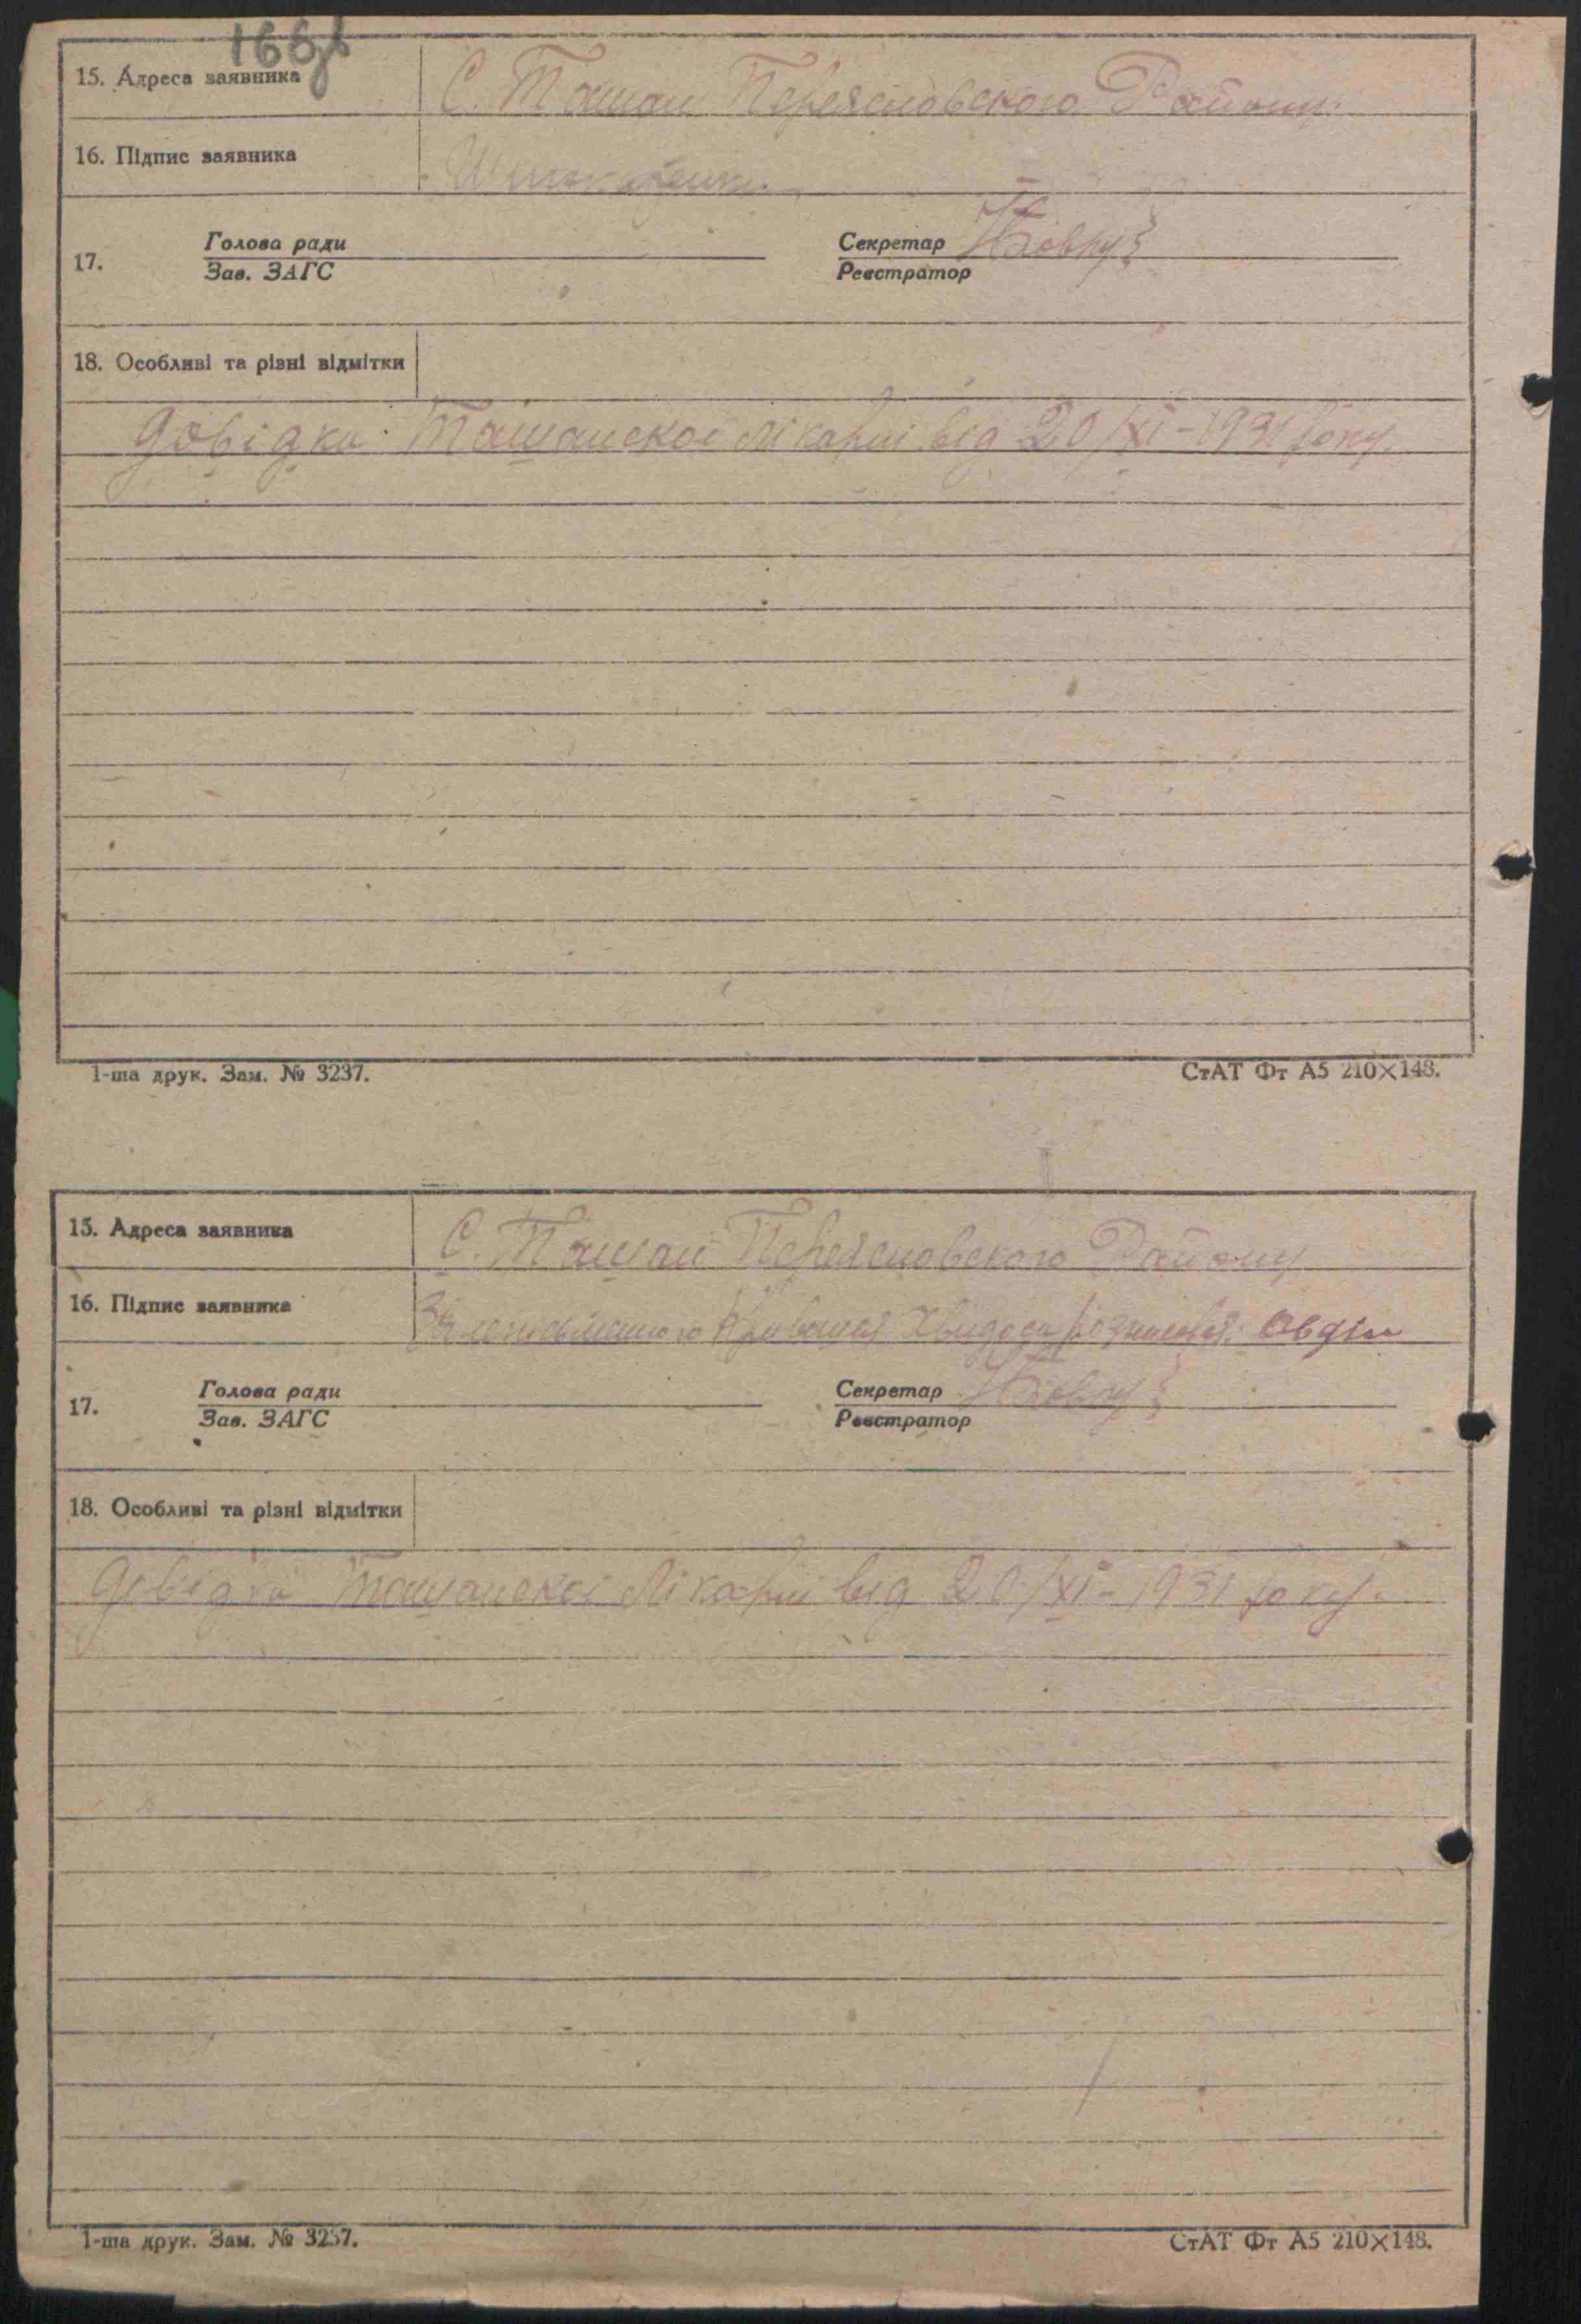 166
15. Адреса заявника С. Ташань Переяславского Району
16. Підпис заявника
Голова ради Секретар
17.
Зав. ЗАГС Реєстратор
18. Особливі та різні відмітки
Довідка Ташанської лікарні від 20/XI-1931 року.
1-ша друк. Зам. № 3237. СтАТ Фт А5 210×148.
15. Адреса заявника С. Ташань Переяславского Району
16. Підпис заявника За неписьменого
Голова ради Секретар
17.
Зав. ЗАГС Реєстратор
18. Особливі та різні відмітки
Довідка Ташанської Лікарні від 20/XI-1931 року.
1-ша друк. Зам. № 3237. СтАТ Фт А5 210×148.